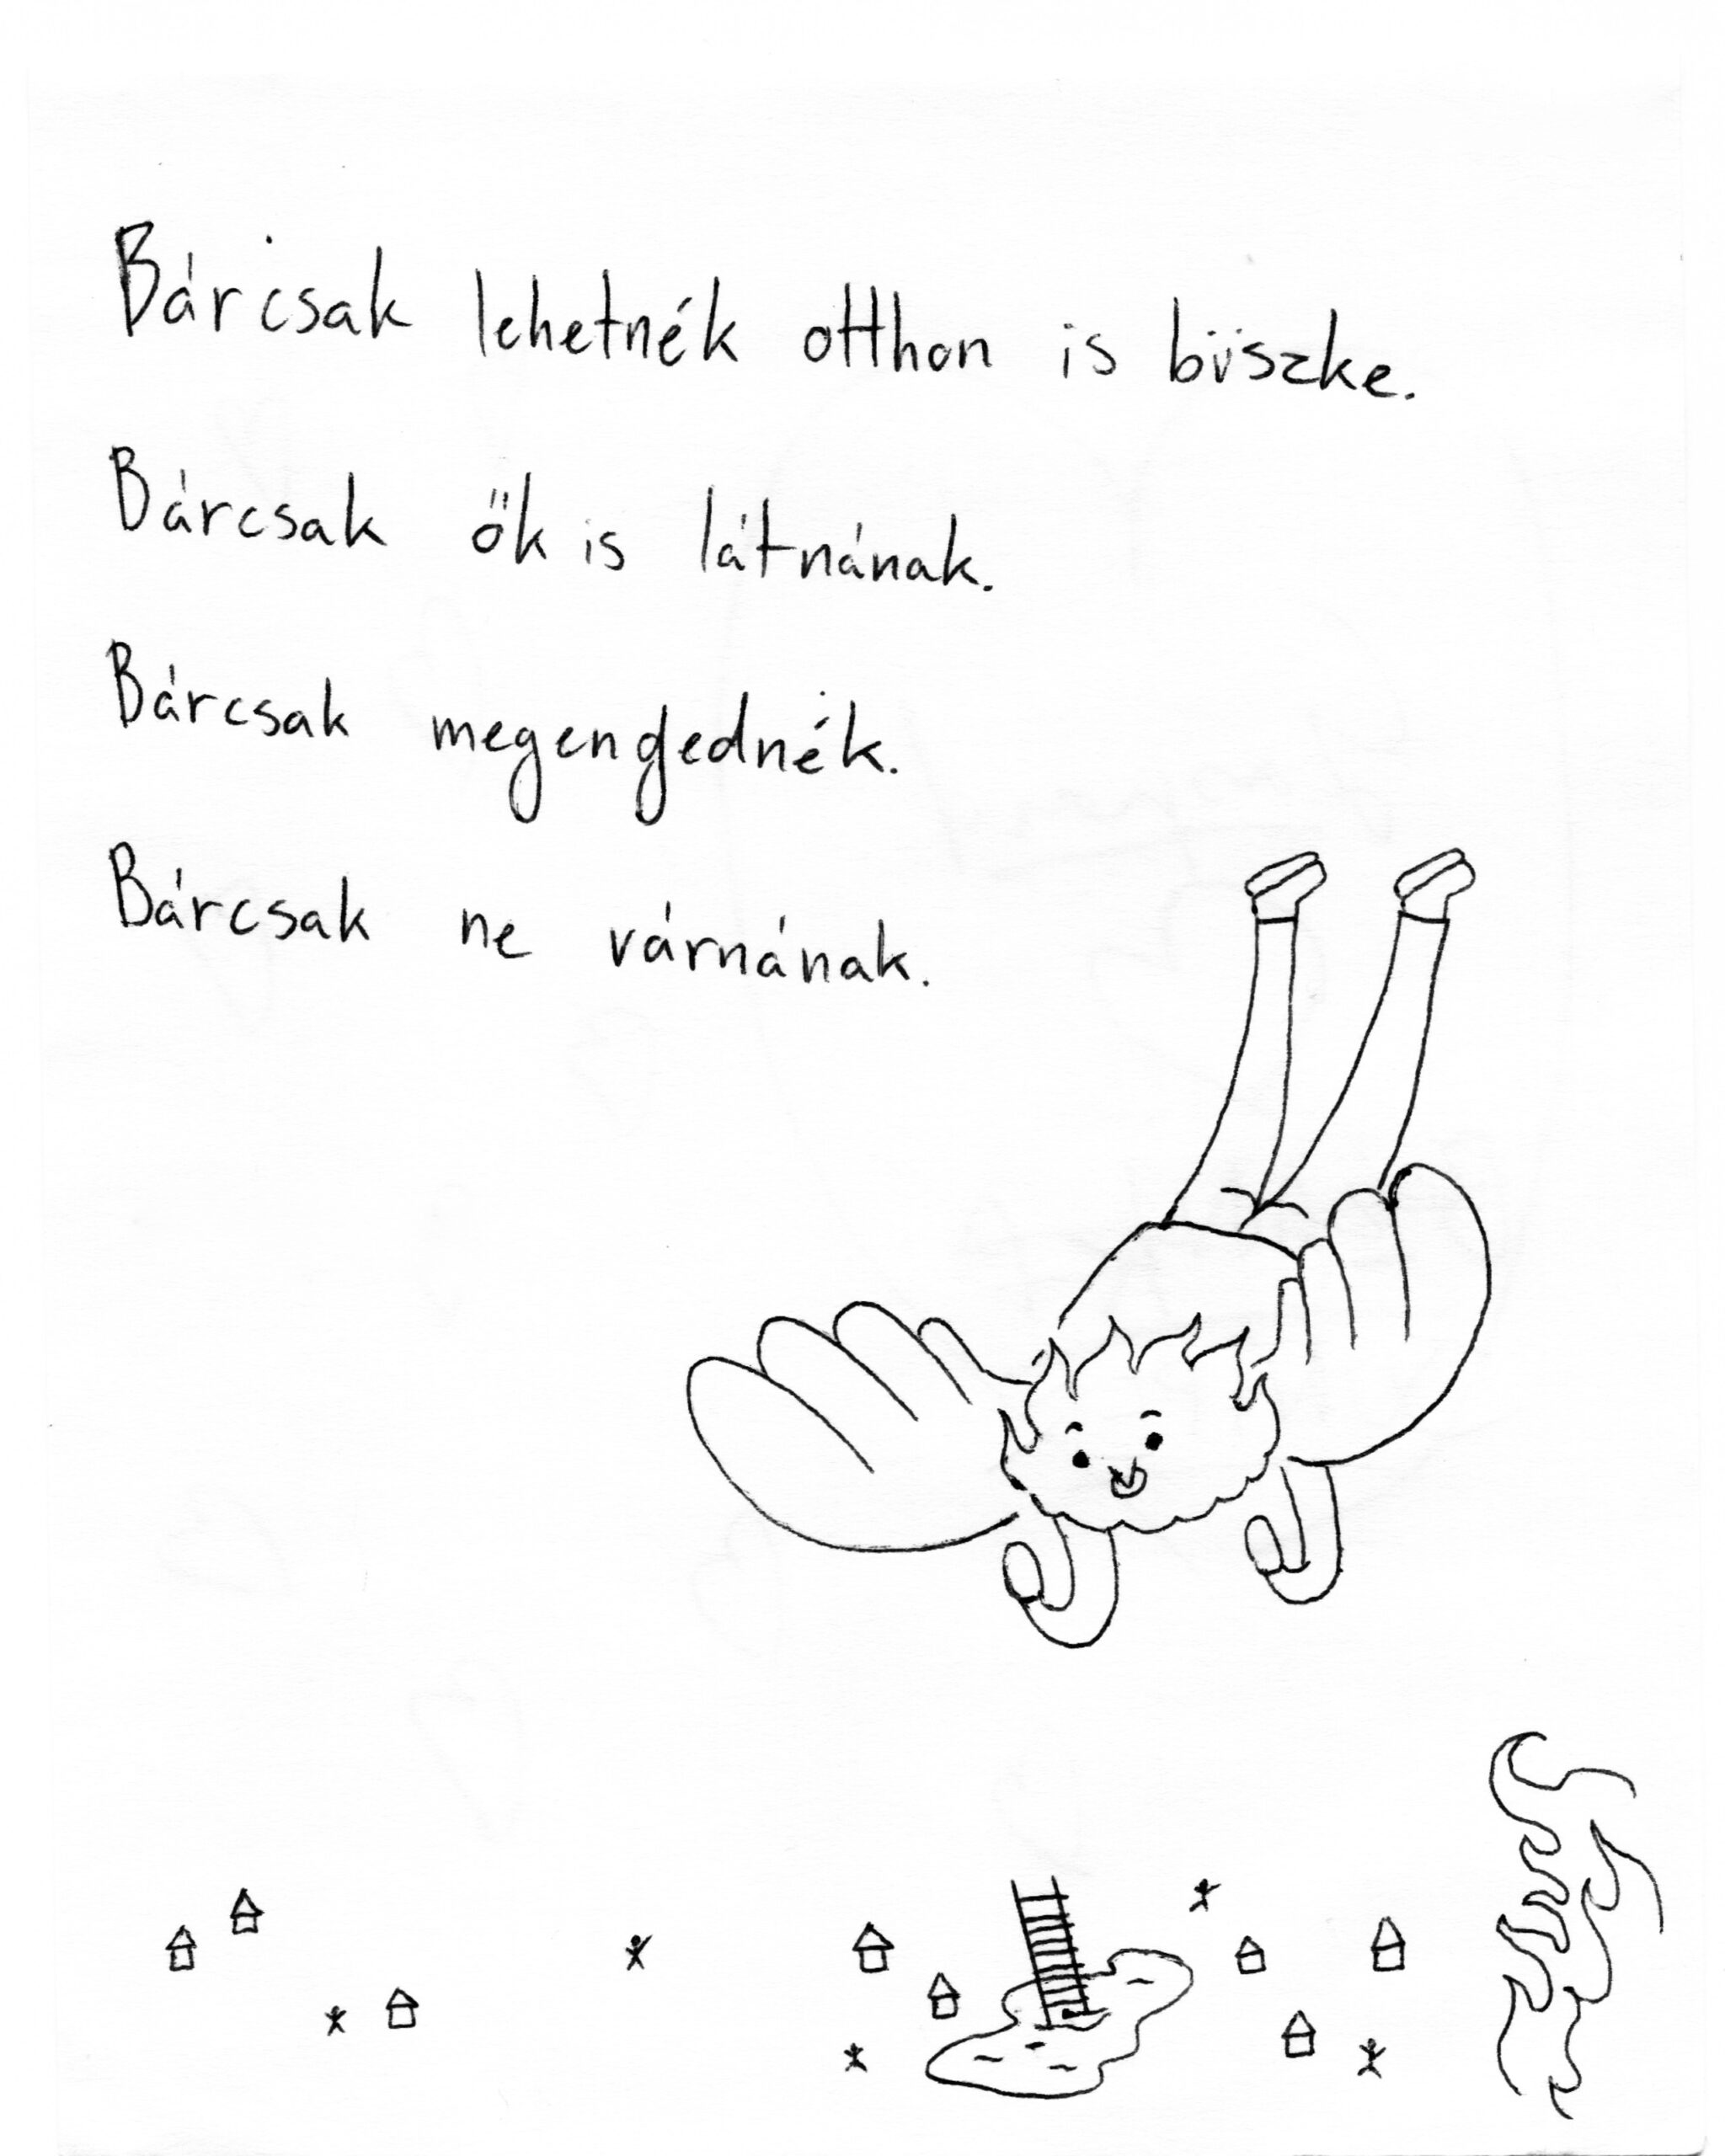 Bárcsak lehetnék otthon is büszke.
Bárcsak ők is látnának.
Bárcsak megengednék.
Bárcsak ne várnának.